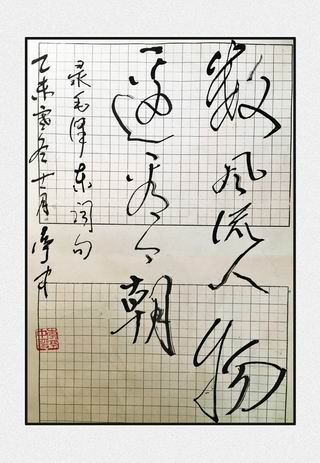 数风流人物
还看今朝
录毛泽东词句
乙未寒冬十一月